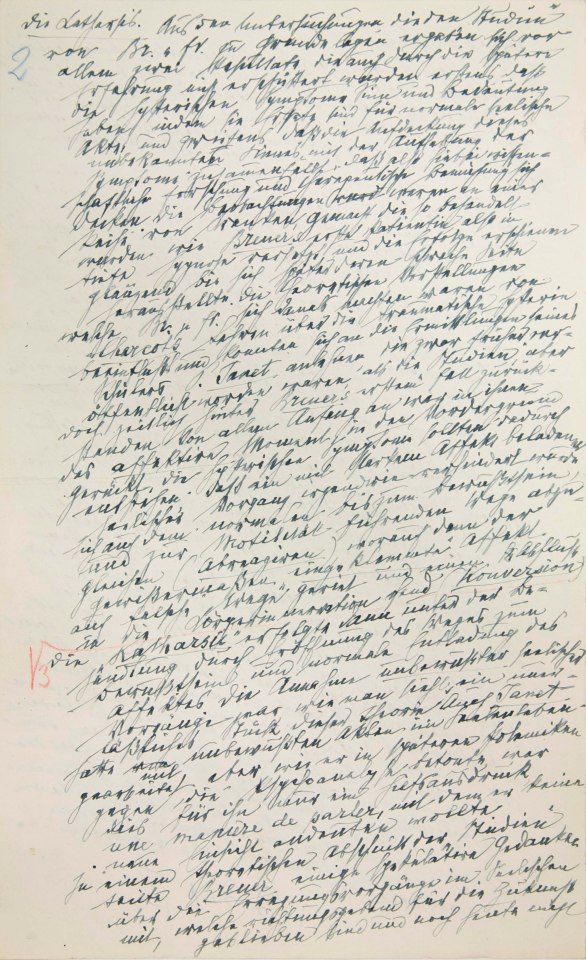 Die Katharsis. Aus den Untersuchungen die den Studien
2
von Br. u Fr. zu Grunde lagen ergaben sich vor
allem zwei Resultate die auch durch die spätere
Erfahrung nicht erschüttert wurden erstens daß
die hysterischen Symptome Sinn und Bedeutung
haben indem sie Ersatz sind für normale seelische
Akte; und zweitens daß die Aufdeckung dieses
unbekannten Sinnes mit der Aufhebung der
Symptome zusammenfällt, daß also hiebei wissen-
schaftliche Forschung und therapeutische Bemühung sich
decken. Die Beobachtungen waren an einer
Reihe von Kranken gemacht die so behandelt
wurden wie Breuers erste Patientin also in
tiefe Hypnose versetzt und die Erfolge erschienen
glänzend bis sich später deren schwache Seite
herausstellte. Die theoretischen Vorstellungen
welche Br. u Fr. sich damals machten waren von
Charcots Lehren über die traumatische Hysterie
beeinflußt und konnten sich an die Ermittlungen seines
Schülers P. Janet anlehnen die zwar früher ver-
öffentlicht worden waren, als die Studien, aber
doch zeitlich hinter Breuers erstem Fall zurück-
standen. Von allem Anfang an war in ihnen
das affektive Moment in den Vordergrund
gerückt, die hysterischen Symptome sollten dadurch
entstehen daß ein mit starkem Affekt beladener
seelischer Vorgang irgendwie verhindert wurde
sich auf dem normalen bis zum Bewußtsein
und zur Motilität führenden Wege abzu-
gleichen (Abreagieren) worauf dann der
gewissermaßen "eingeklemmte" Affekt
auf falsche Wege geriet und einen Abfluß
in die Körperinnervation fand (Konversion)
V3
Die "Katharsis" erfolgte dann unter der Be-
handlung durch Eröffnung des Weges zum
Bewußtsein und normale Entladung des
Affektes. Die Annahme unbewußter seelischer
Vorgänge war wie man sieht ein uner-
läßliches Stück dieser Theorie. Auch Janet
hatte mit unbewußten Akten im Seelenleben
gearbeitet, aber wie er in späteren Polemiken
gegen die Psychoanalyse betonte, war
dies für ihn nur ein Hilfsausdruck
une manière de parler, mit dem er keine
neue Einsicht andeuten wollte.
In einem theoretischen Abschnitt der "Studien"
teilte Breuer einige spekulative Gedanken
über die Erregungsvorgänge im Seelischen
mit, welche richtungsgebend für die Zukunft
geblieben sind und noch heute nicht